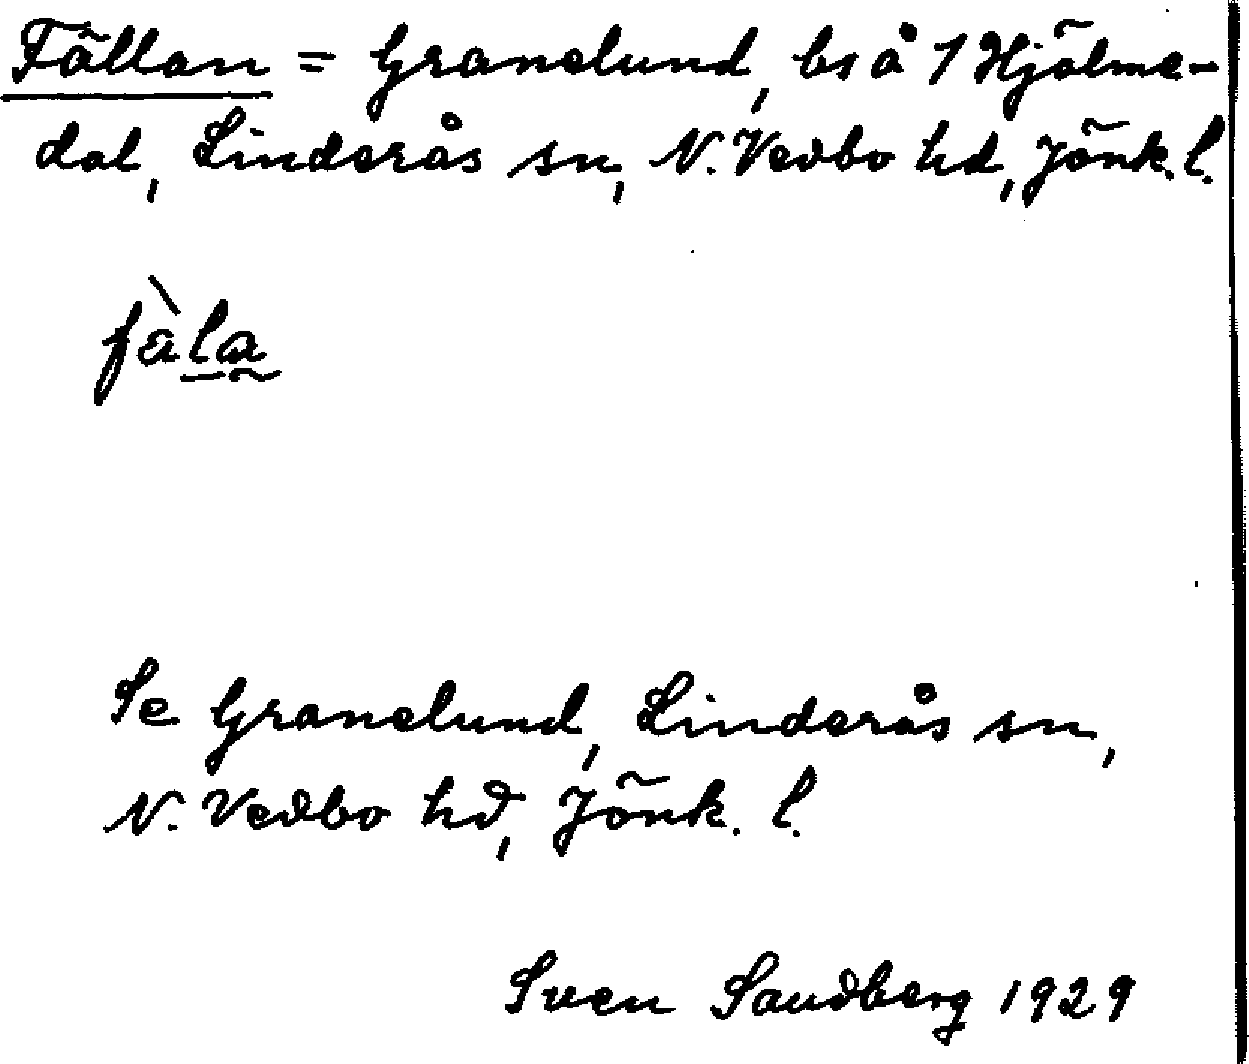 Fällan = Granelund, bs å 1 Hjälme-
dal, Linderås sn, N. Vedbo hd, Jönk. l.
fàla
Se Granelund, Linderås sn,
N. Vedbo hd, Jönk. l.
Sven Sandberg 1929